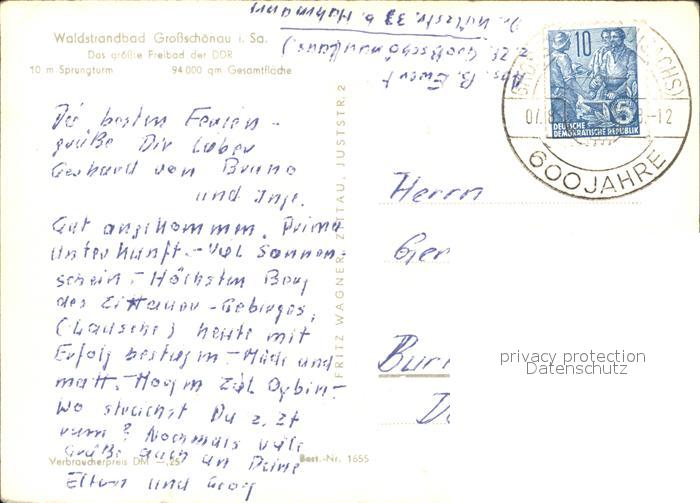 Waldstrandbad Großschönau i. Sa.
Das größte Freibad der DDR
10 m Sprungturm 94 000 qm Gesamtfläche
Die besten Ferien-
grüße Dir lieber
Gerhard von Bruno
und Inge.
Gut angekommen. Prima
Unterkunft. - Viel Sonnen-
schein. - Höchsten Berg
des Zittauer-Gebirges,
(Lausche) heute mit
Erfolg bestiegen. - Müde und
matt. - Morgen Ziel Oybin. -
Wo steckst Du z. Zt
rum? Nochmals viele
Grüße auch an Deine
Eltern und Georg
Verbraucherpreis DM —,25
Best.-Nr. 1655
FRITZ WAGNER, ZITTAU, JUSTSTR. 2
Abs. B. Ewert
z. Zt. Großschönau (Laus.)
Dr. Külzstr. 33 b.
10
5
DEUTSCHE
DEMOKRATISCHE REPUBLIK
600 JAHRE
Herrn
Ger
Bur
privacy protection
Datenschutz